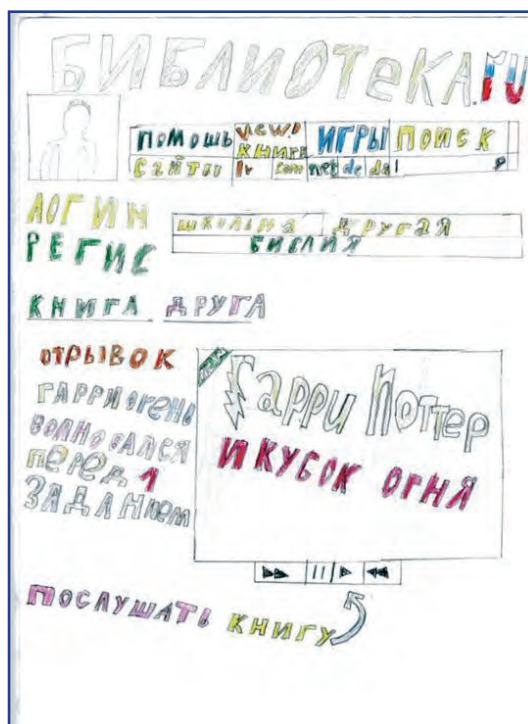 БИБЛИОТЕКА.RU
ПОМОШЬ УЄW.! КНИГИ ИГРЫ ПОИСК
САЙТЫ lv com net de da
ЛОГИН
РЕГИС
ШКОЛЬНА ДРУГАЯ
БИБЛИЯ
КНИГА ДРУГА
ОТРЫВОК
ГАРРИ ОЧЕНЬ
ВОЛНОВАЛСЯ
ПЕРЕД 1
ЗАДАНИЕМ
Гарри Поттер
И КУБОК ОГНЯ
ПОСЛУШАТЬ КНИГУ